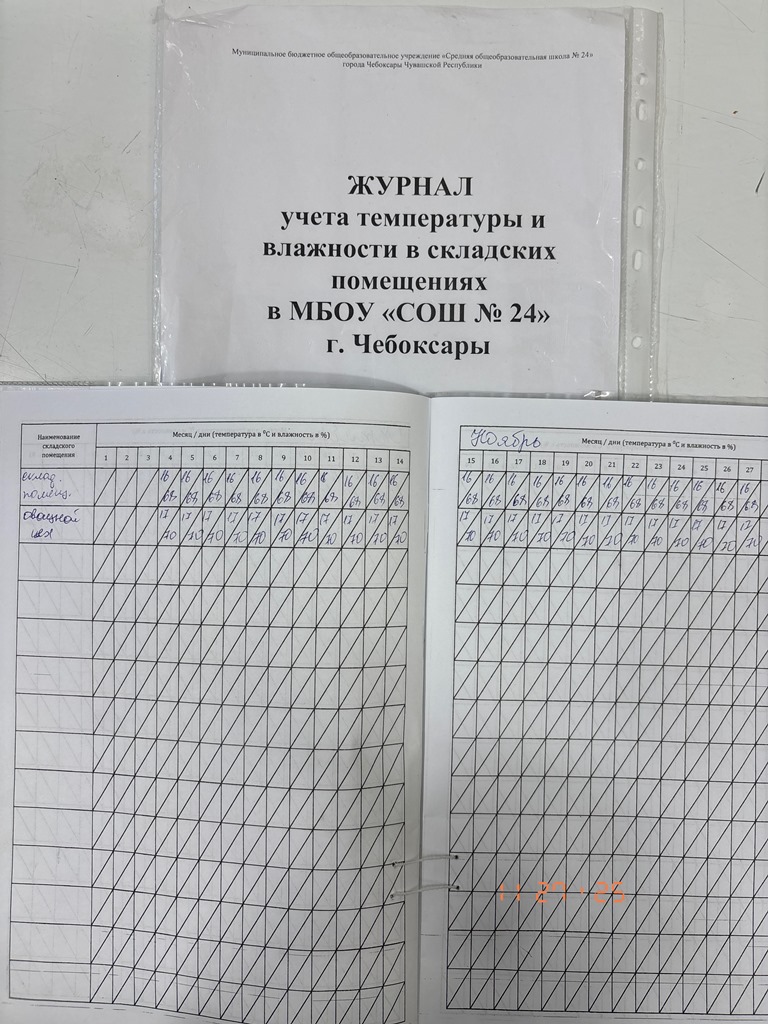 Муниципальное бюджетное общеобразовательное учреждение «Средняя общеобразовательная школа № 24»
города Чебоксары Чувашской Республики
ЖУРНАЛ
учета температуры и
влажности в складских
помещениях
в МБОУ «СОШ № 24»
г. Чебоксары
Наименование складского помещения
Месяц / дни (температура в ⁰С и влажность в %)
1 2 3 4 5 6 7 8 9 10 11 12 13 14
склад. 16 16 16 16 16 16 16 16 16 16 16
помещ. 68 68 68 68 68 68 68 68 68 68 68
овощной 17 17 17 17 17 17 17 17 17 17 17
цех 70 70 70 70 70 70 70 70 70 70 70
Ноябрь Месяц / дни (температура в ⁰С и влажность в %)
15 16 17 18 19 20 21 22 23 24 25 26 27
16 16 16 16 16 16 16 16 16 16 16 16 16
68 68 68 68 68 68 68 68 68 68 68 68 68
17 17 17 17 17 17 17 17 17 17 17 17 17
70 70 70 70 70 70 70 70 70 70 70 70 70
11 27 '25